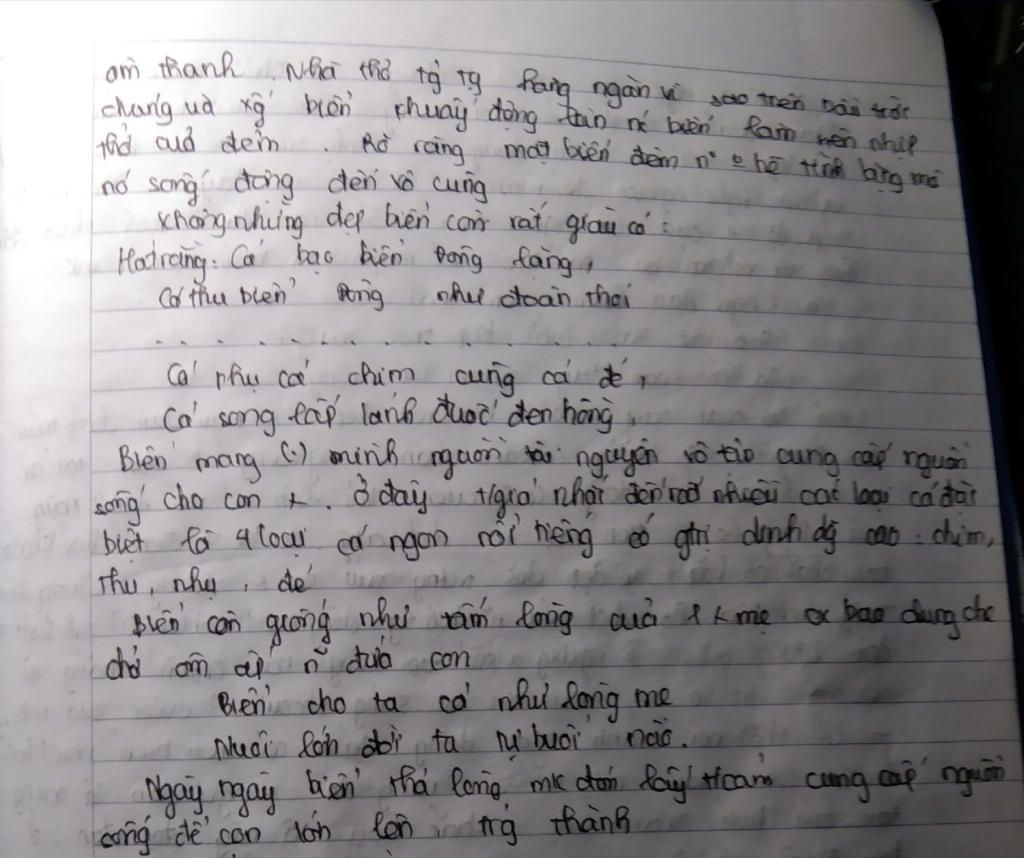 âm thanh. Nhà thơ tg tg hàng ngàn vì sao trên bầu trời
chang uà xg biển khuấy động làn nc biển làm nên nhịp
thở cuả đêm. Rõ ràng mặt biển đêm n
nó sống động đến vô cùng
không những đẹp biển còn rất giàu có:
Hát rằng: Cá bạc biển Đông lặng,
Cá thu biển Đông như đoàn thoi
. . . . . . . . . . . . . .
Cá nhụ cá chim cùng cá đé,
Cá song lấp lánh đuốc đen hồng,
Biển mang (.) mình nguồn tài nguyên vô tận cung cấp nguồn
sống cho con . Ở đây t/giả nhắc đến rất nhiều các loại cá đặc
biệt là 4 loại cá ngon nổi tiếng có gtrị dinh dg cao: chim,
thu, nhụ, đé
Biển còn giống như tấm lòng cuả mẹ bao dung che
chở ôm ấp n~ đứa con
Biển cho ta cá như lòng mẹ
Nuôi lớn đời ta tự buổi nào.
Ngày ngày biển thả lòng mk đón lấy cung cấp nguồn
sống để con lớn lên trg thành